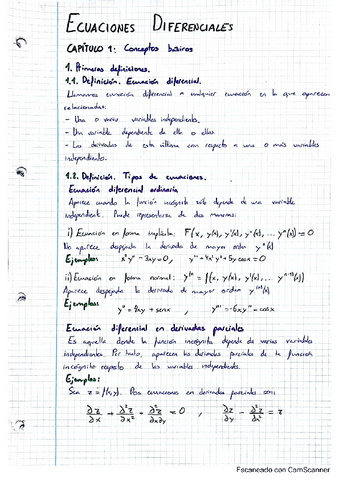 ECUACIONES DIFERENCIALES
CAPÍTULO 1: Conceptos básicos
1. Primeras definiciones.
1.1. Definición. Ecuación diferencial.
Llamamos ecuación diferencial a cualquier ecuación en la que aparecen
relacionadas:
- Una o varias variables independientes.
- Una variable dependiente de ella o ellas
- Las derivadas de esta última con respecto a una o más variables
independientes.
1.2. Definición. Tipos de ecuaciones.
Ecuación diferencial ordinaria
Aparece cuando la función incógnita sólo depende de una variable
independiente. Puede representarse de dos maneras:
i) Ecuación en forma implícita: F(x, y(x), y'(x), y''(x), ... yⁿ(x)) = 0
No aparece despejada la derivada de mayor orden yⁿ(x)
Ejemplos: x²y' - 3xy = 0, y'' + 4x²y' + 5y cosx = 0
ii) Ecuación en forma normal: yⁿ = f(x, y(x), y'(x), ... yⁿ⁻¹(x))
Aparece despejada la derivada de mayor orden yⁿ(x)
Ejemplos: y'' = 4xy + senx, y''' = -6xy''' - cosx
Ecuación diferencial en derivadas parciales
Es aquella donde la función incógnita depende de varias variables
independientes. Por tanto, aparecen las derivadas parciales de la función
incógnita respecto de las variables independientes.
Ejemplos:
Sea z = f(x,y). Dos ecuaciones en derivadas parciales son:
∂z/∂x + ∂²z/∂x² - ∂²z/∂x∂y = 0, ∂z/∂y - ∂²z/∂x² = z
Escaneado con CamScanner